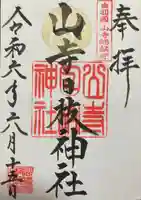 奉拝
出羽國山寺鎮座
山寺日枝神社
山寺
神社
令和六年六月十五日